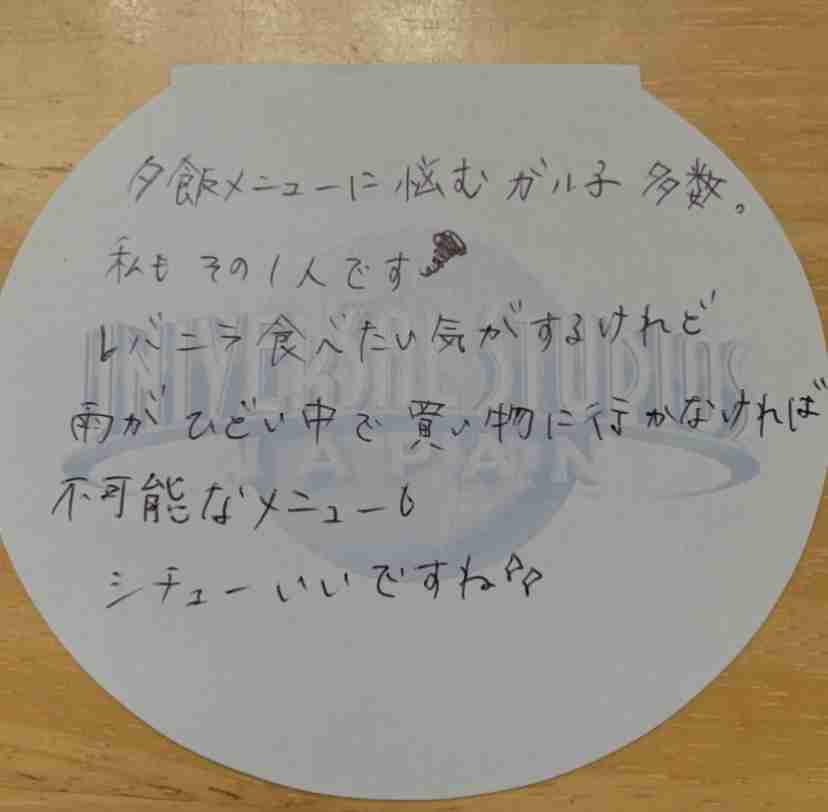 夕飯メニューに悩むガル子 多数。
私も その1人です
レバニラ食べたい気がするけれど
雨が ひどい中で 買い物に行かなければ
不可能なメニュー。
シチューいいですね♪♪
UNIVERSAL STUDIOS
JAPAN